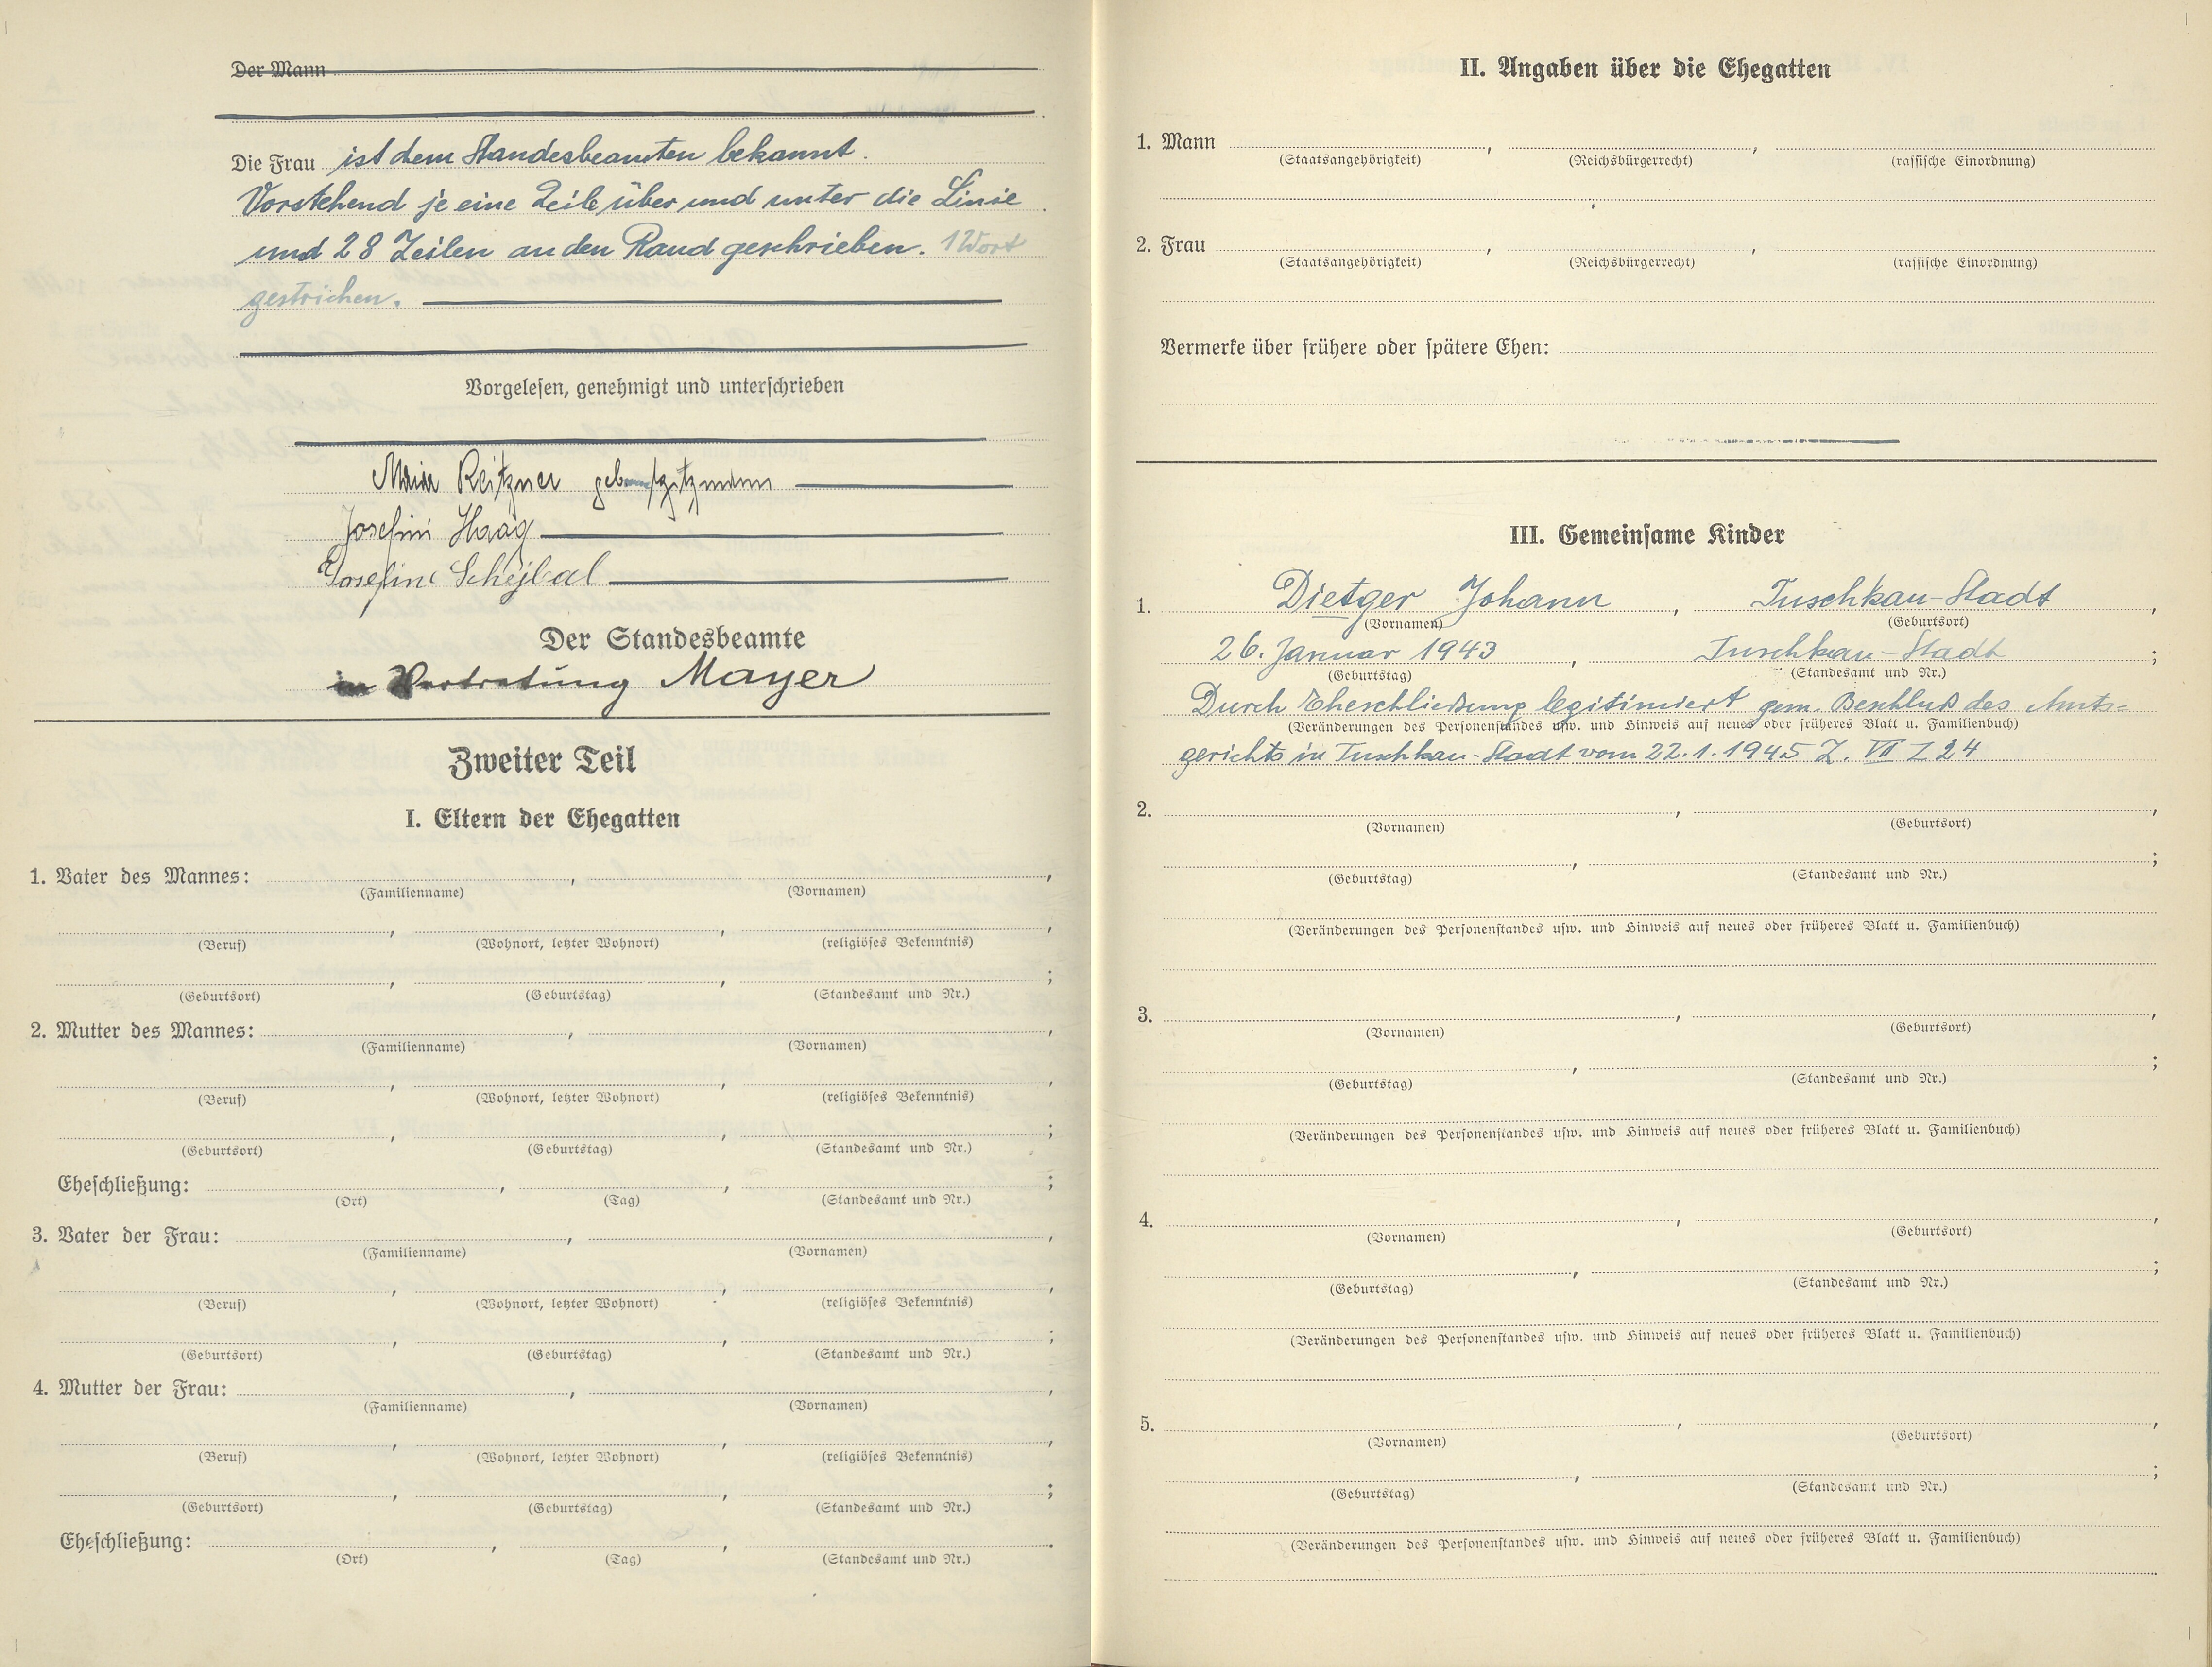 Der Mann
Die Frau ist dem Standesbeamten bekannt.
Vorstehend je eine Zeile über und unter die Linie
und 28 Zeilen an den Rand geschrieben. 1 Wort
gestrichen.
Vorgelesen, genehmigt und unterschrieben
Maria Reitzner geb.
Josefine Haag
Josefine Schejbal
Der Standesbeamte
in Vertretung Mayer
Zweiter Teil
I. Eltern der Ehegatten
1. Vater des Mannes: , ,
(Familienname) (Vornamen)
, , ,
(Beruf) (Wohnort, letzter Wohnort) (religiöses Bekenntnis)
, , ;
(Geburtsort) (Geburtstag) (Standesamt und Nr.)
2. Mutter des Mannes: , ,
(Familienname) (Vornamen)
, , ,
(Beruf) (Wohnort, letzter Wohnort) (religiöses Bekenntnis)
, , ;
(Geburtsort) (Geburtstag) (Standesamt und Nr.)
Eheschließung: , , ;
(Ort) (Tag) (Standesamt und Nr.)
3. Vater der Frau: , ,
(Familienname) (Vornamen)
, , ,
(Beruf) (Wohnort, letzter Wohnort) (religiöses Bekenntnis)
, , ;
(Geburtsort) (Geburtstag) (Standesamt und Nr.)
4. Mutter der Frau: , ,
(Familienname) (Vornamen)
, , ,
(Beruf) (Wohnort, letzter Wohnort) (religiöses Bekenntnis)
, , ;
(Geburtsort) (Geburtstag) (Standesamt und Nr.)
Eheschließung: , , .
(Ort) (Tag) (Standesamt und Nr.)
II. Angaben über die Ehegatten
1. Mann , ,
(Staatsangehörigkeit) (Reichsbürgerrecht) (rassische Einordnung)
2. Frau , ,
(Staatsangehörigkeit) (Reichsbürgerrecht) (rassische Einordnung)
Vermerke über frühere oder spätere Ehen:
III. Gemeinsame Kinder
1. Dietger Johann , Tuschkau-Stadt ,
(Vornamen) (Geburtsort)
26. Januar 1943 , Tuschkau-Stadt ;
(Geburtstag) (Standesamt und Nr.)
Durch Eheschließung legitimiert gem. Beschluß des Amts-
(Veränderungen des Personenstandes usw. und Hinweis auf neues oder früheres Blatt u. Familienbuch)
gerichts in Tuschkau-Stadt vom 22.1.1945 Z. VII Z 24
2. , ,
(Vornamen) (Geburtsort)
, ;
(Geburtstag) (Standesamt und Nr.)
(Veränderungen des Personenstandes usw. und Hinweis auf neues oder früheres Blatt u. Familienbuch)
3. , ,
(Vornamen) (Geburtsort)
, ;
(Geburtstag) (Standesamt und Nr.)
(Veränderungen des Personenstandes usw. und Hinweis auf neues oder früheres Blatt u. Familienbuch)
4. , ,
(Vornamen) (Geburtsort)
, ;
(Geburtstag) (Standesamt und Nr.)
(Veränderungen des Personenstandes usw. und Hinweis auf neues oder früheres Blatt u. Familienbuch)
5. , ,
(Vornamen) (Geburtsort)
, ;
(Geburtstag) (Standesamt und Nr.)
(Veränderungen des Personenstandes usw. und Hinweis auf neues oder früheres Blatt u. Familienbuch)